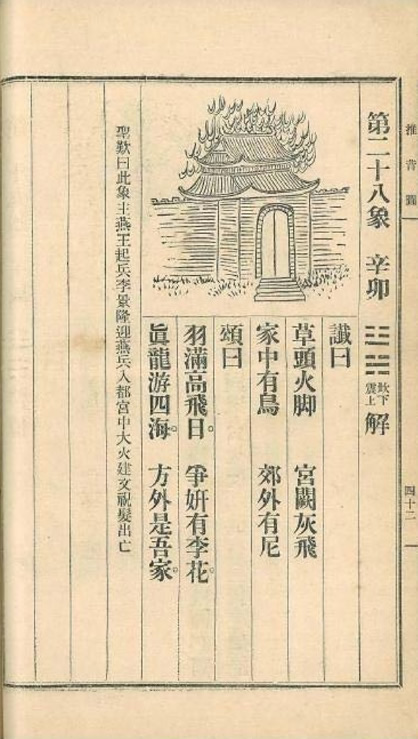 推背圖
四十二
第二十八象 辛卯 ䷧ 坎下震上 解
讖曰
草頭火脚 宮闕灰飛
家中有鳥 郊外有尼
頌曰
羽滿高飛日。 爭姸有李花。
眞龍游四海。 方外是吾家。
聖歎曰此象主燕王起兵李景隆迎燕兵入都宮中大火建文祝髮出亡